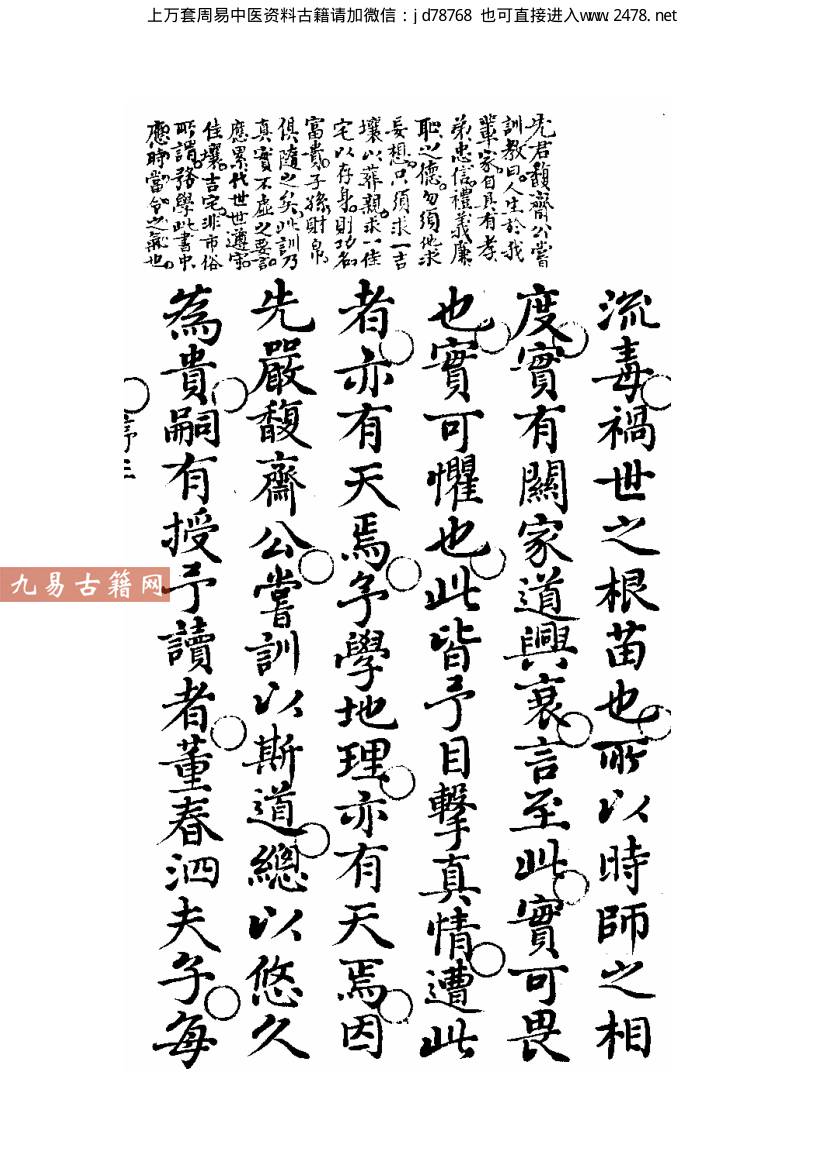 上万套周易中医资料古籍请加微信：jd78768 也可直接进入www.2478.net
先君馥齋公嘗
訓教曰人生於我
輩家自具有孝
弟忠信禮義廉
恥之德勿須他求
妄想只須求一吉
壤以葬親求一佳
宅以存身則功名
富貴子孫財帛
俱隨之矣此訓乃
真實不虛之要訣
應累代世世遵守
佳壤吉宅非市俗
所謂務學此書中
應時當令之氣也
流毒禍世之根苗也所以時師之相
度實有關家道興衰言至此實可畏
也實可懼也此皆予目擊真情遭此
者亦有天焉予學地理亦有天焉因
先嚴馥齋公嘗訓以斯道總以悠久
為貴嗣有授予讀者董春泗夫子每
序三
九易古籍网